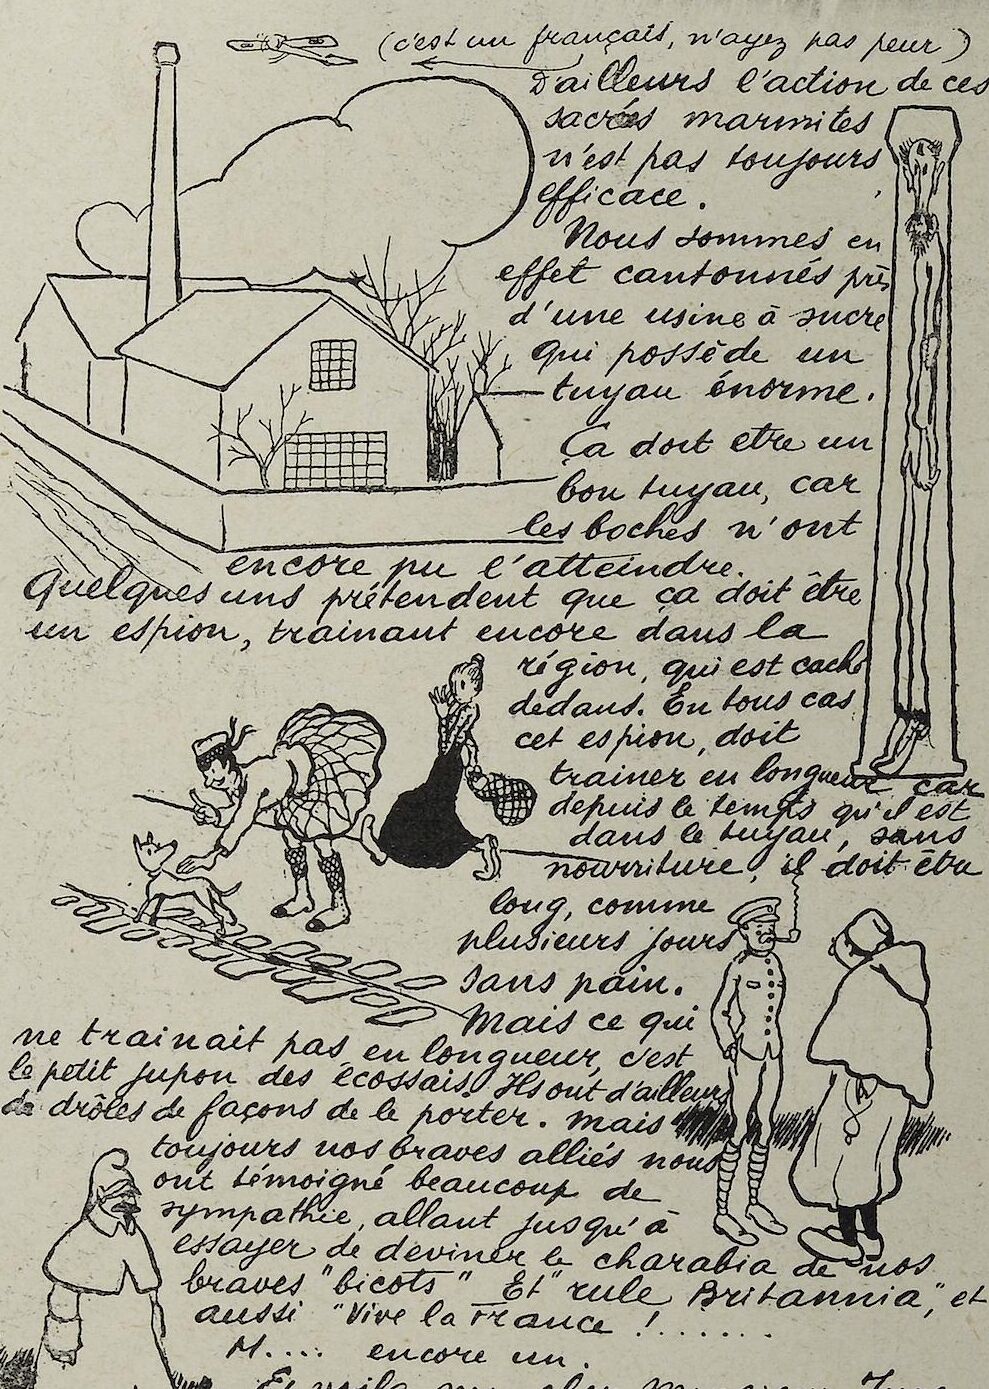 (c'est un français, n'ayez pas peur)
D'ailleurs l'action de ces
sacrés marmites
n'est pas toujours
efficace.
Nous sommes en
effet cantonnés près
d'une usine à sucre
qui possède un
tuyau énorme.
Ça doit etre un
bon tuyau, car
les boches n'ont
encore pu l'atteindre.
Quelques uns prétendent que ça doit être
un espion, trainant encore dans la
région, qui est caché
dedans. En tous cas
cet espion, doit
trainer en longueur car
depuis le temps qu'il est
dans le tuyau, sans
nourriture, il doit être
long, comme
plusieurs jours
sans pain.
Mais ce qui
ne trainait pas en longueur, c'est
le petit jupon des écossais. Ils ont d'ailleurs
de drôles de façons de le porter. Mais
toujours nos braves alliés nous
ont témoigné beaucoup de
sympathie, allant jusqu'à
essayer de deviner le charabia de nos
braves "bicots" Et "rule Britannia", et
aussi "Vive la France !.......
M.... encore un.
Et voilà